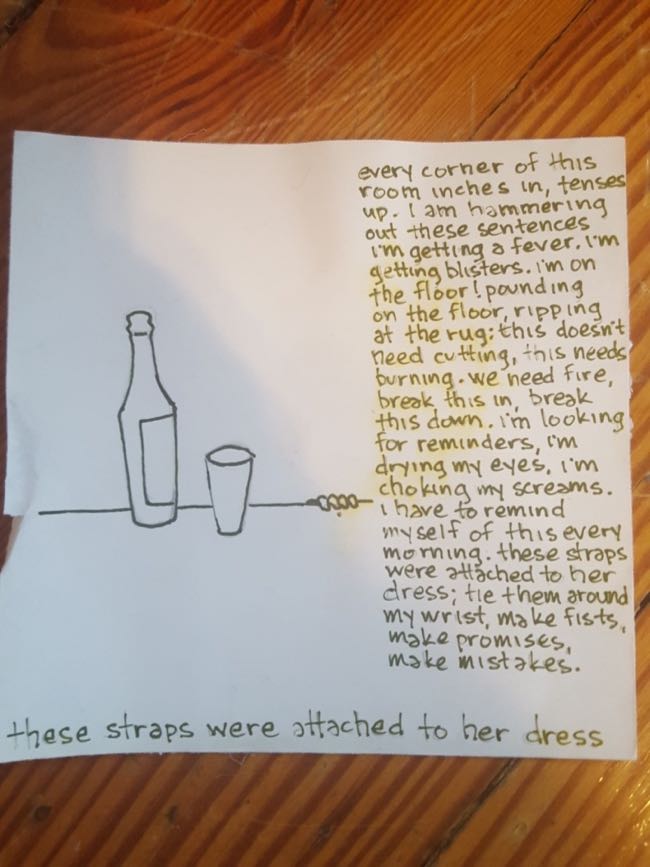 every corner of this
room inches in, tenses
up. I am hammering
out these sentences
i'm getting a fever. I'm
getting blisters. i'm on
the floor! pounding
on the floor, ripping
at the rug: this doesn't
need cutting, this needs
burning. we need fire,
break this in, break
this down. i'm looking
for reminders, i'm
drying my eyes, i'm
choking my screams.
i have to remind
myself of this every
morning. these straps
were attached to her
dress; tie them around
my wrist, make fists,
make promises,
make mistakes.
these straps were attached to her dress